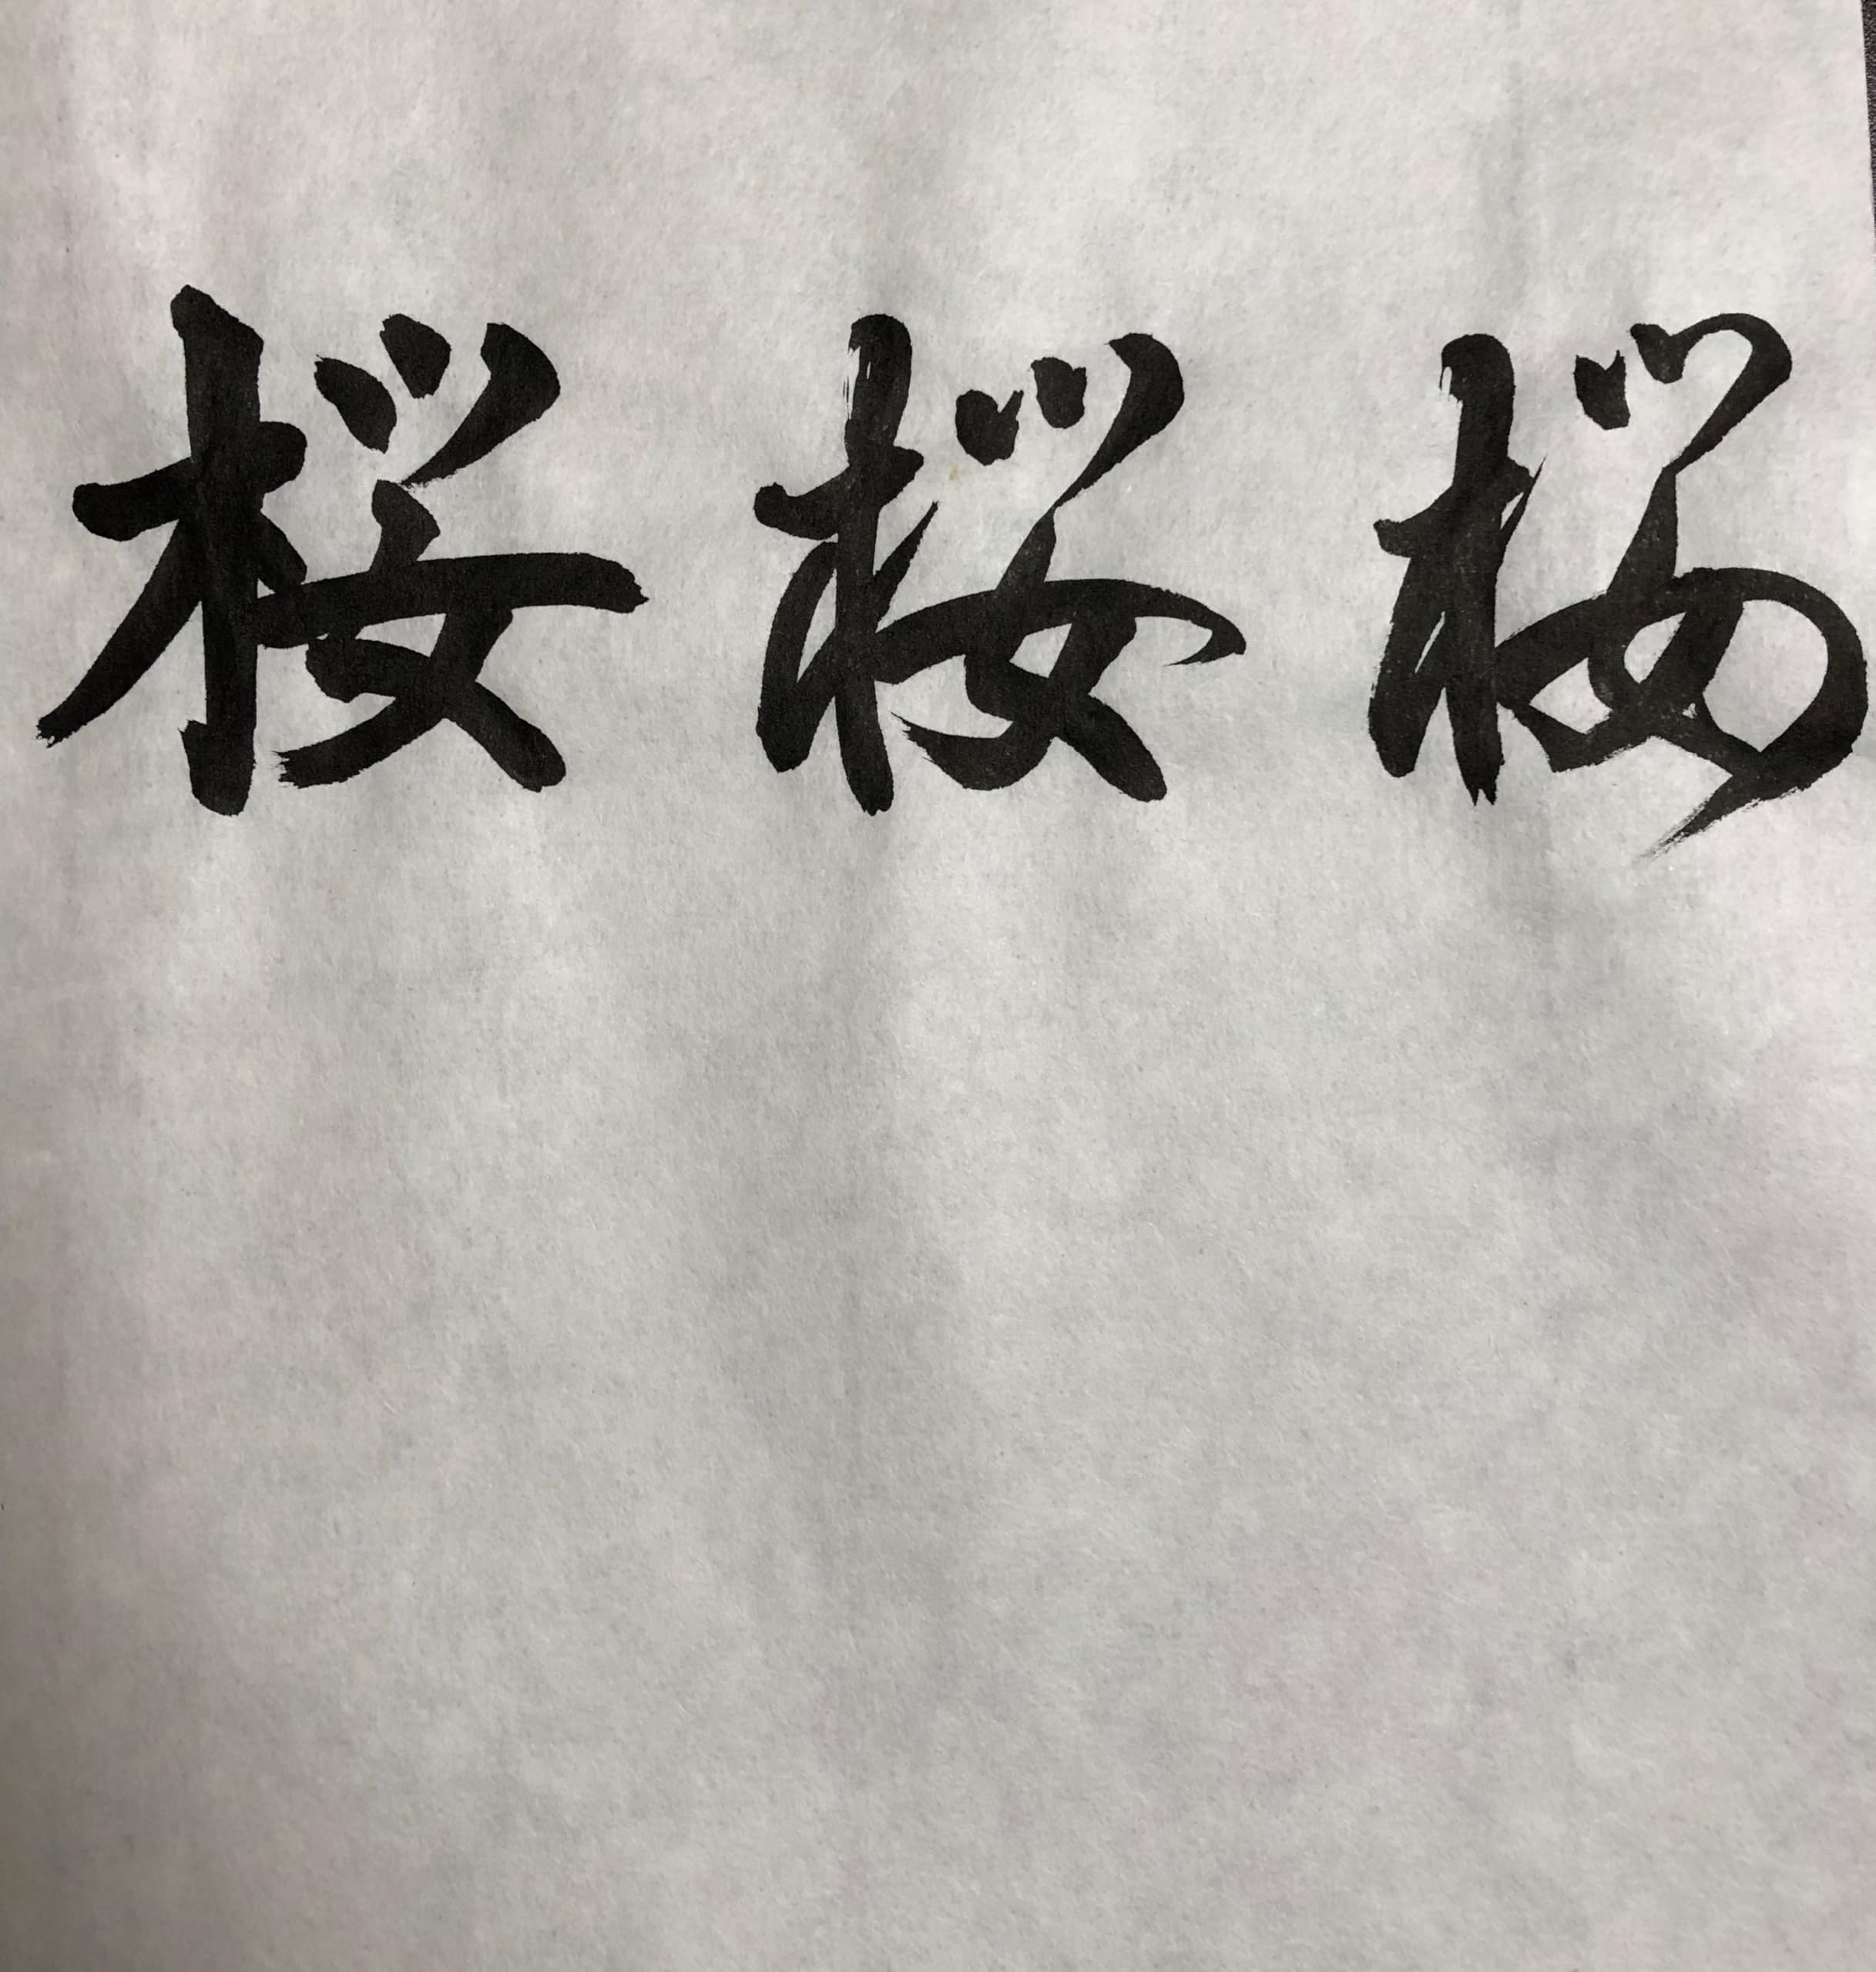 桜 桜 桜